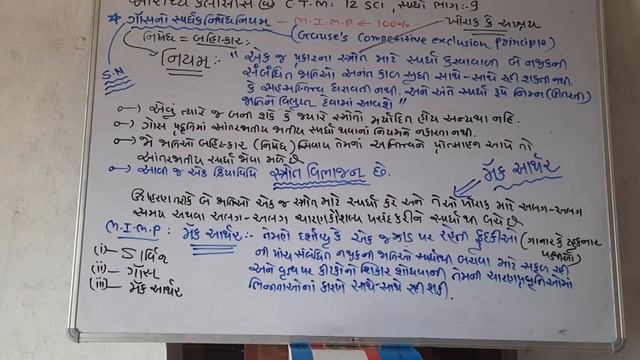 આરાધ્ય ક્લાસીસ @ C.T.M: 12 SCI , સ્પર્ધા ભાગ:-9
* ગૉસનો સ્પર્ધક નિષેધ નિયમ - M.I.M.P ← 100% ખોરાક કે આશ્રય
નિષેધ = બહિષ્કાર: (Gause's Competitive exclusion Principle)
S.N નિયમ:- "એક જ પ્રકારના સ્ત્રોત માટે સ્પર્ધા કરવાવાળી બે નજીકની
સંબંધિત જાતિઓ અનંત કાળ સુધી સાથે-સાથે રહી શકતી નથી.
કે સહઅસ્તિત્વ ધરાવતી નથી. અને અંતે સ્પર્ધા રૂપે નિમ્ન (ઉતરતી)
જાતિને વિલુપ્ત કરવામાં આવશે"
→ એવું ત્યારે જ બની શકે કે જ્યારે સ્ત્રોતો મર્યાદિત હોય અન્યથા નહિ.
→ ગૉસ પદ્ધતિમાં આંતરજાતીય સ્પર્ધા થવાનાં નિયમને નકારતા નથી.
→ જે જાતિઓ બહિષ્કાર (નિષેધ) સિવાય તેમનાં અસ્તિત્વને પ્રોત્સાહન આપે તો
આંતરજાતીય સ્પર્ધા જોવા મળે છે
→ આવી જ એક ક્રિયાવિધિ સ્ત્રોત વિભાજન છે. મૅક આર્થર
ઉદાહરણ તરીકે બે જાતિઓ એક જ સ્ત્રોત માટે સ્પર્ધા કરે અને તેઓ ખોરાક માટે અલગ-અલગ
સમય અથવા અલગ-અલગ ચારણકૌશલ્ય પસંદ કરીને સ્પર્ધાથી બચે છે
M.I.M.P: મૅક આર્થર:- તેમણે દર્શાવ્યુ કે એક જ ઝાડ પર રહેતી ફુદકીઓ (ગાનાર કે ટહુકનાર પક્ષીઓ)
(i) ડાર્વિન ની પાંચ સંબંધિત નજીકની જાતિઓ સ્પર્ધાથી બચવા માટે સફળ રહી
(ii) ગૉસ અને વૃક્ષ પર કીટકોનો શિકાર શોધવાની તેમની ચારણપ્રવૃતિઓમાં
(iii) મૅક આર્થર ભિન્નતાઓનાં કારણે સાથે-સાથે રહી શકી.